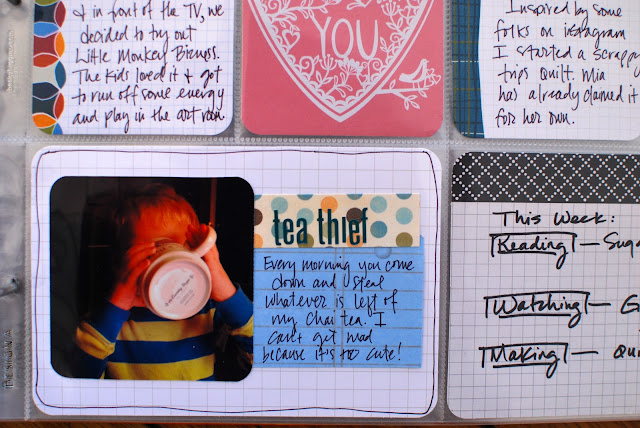 & in front of the TV, we
decided to try out
Little Monkey Bizness.
The kids loved it & got
to run off some energy
and play in the art room.
YOU
Inspired by some
folks on instagram
I started a scrappy
trips quilt. Mia
has already claimed it
for her own.
tea thief
Every morning you come
down and steal
whatever is left of
my chai tea. I
can't get mad
because it's too cute!
This Week:
Reading —
Watching —
Making —